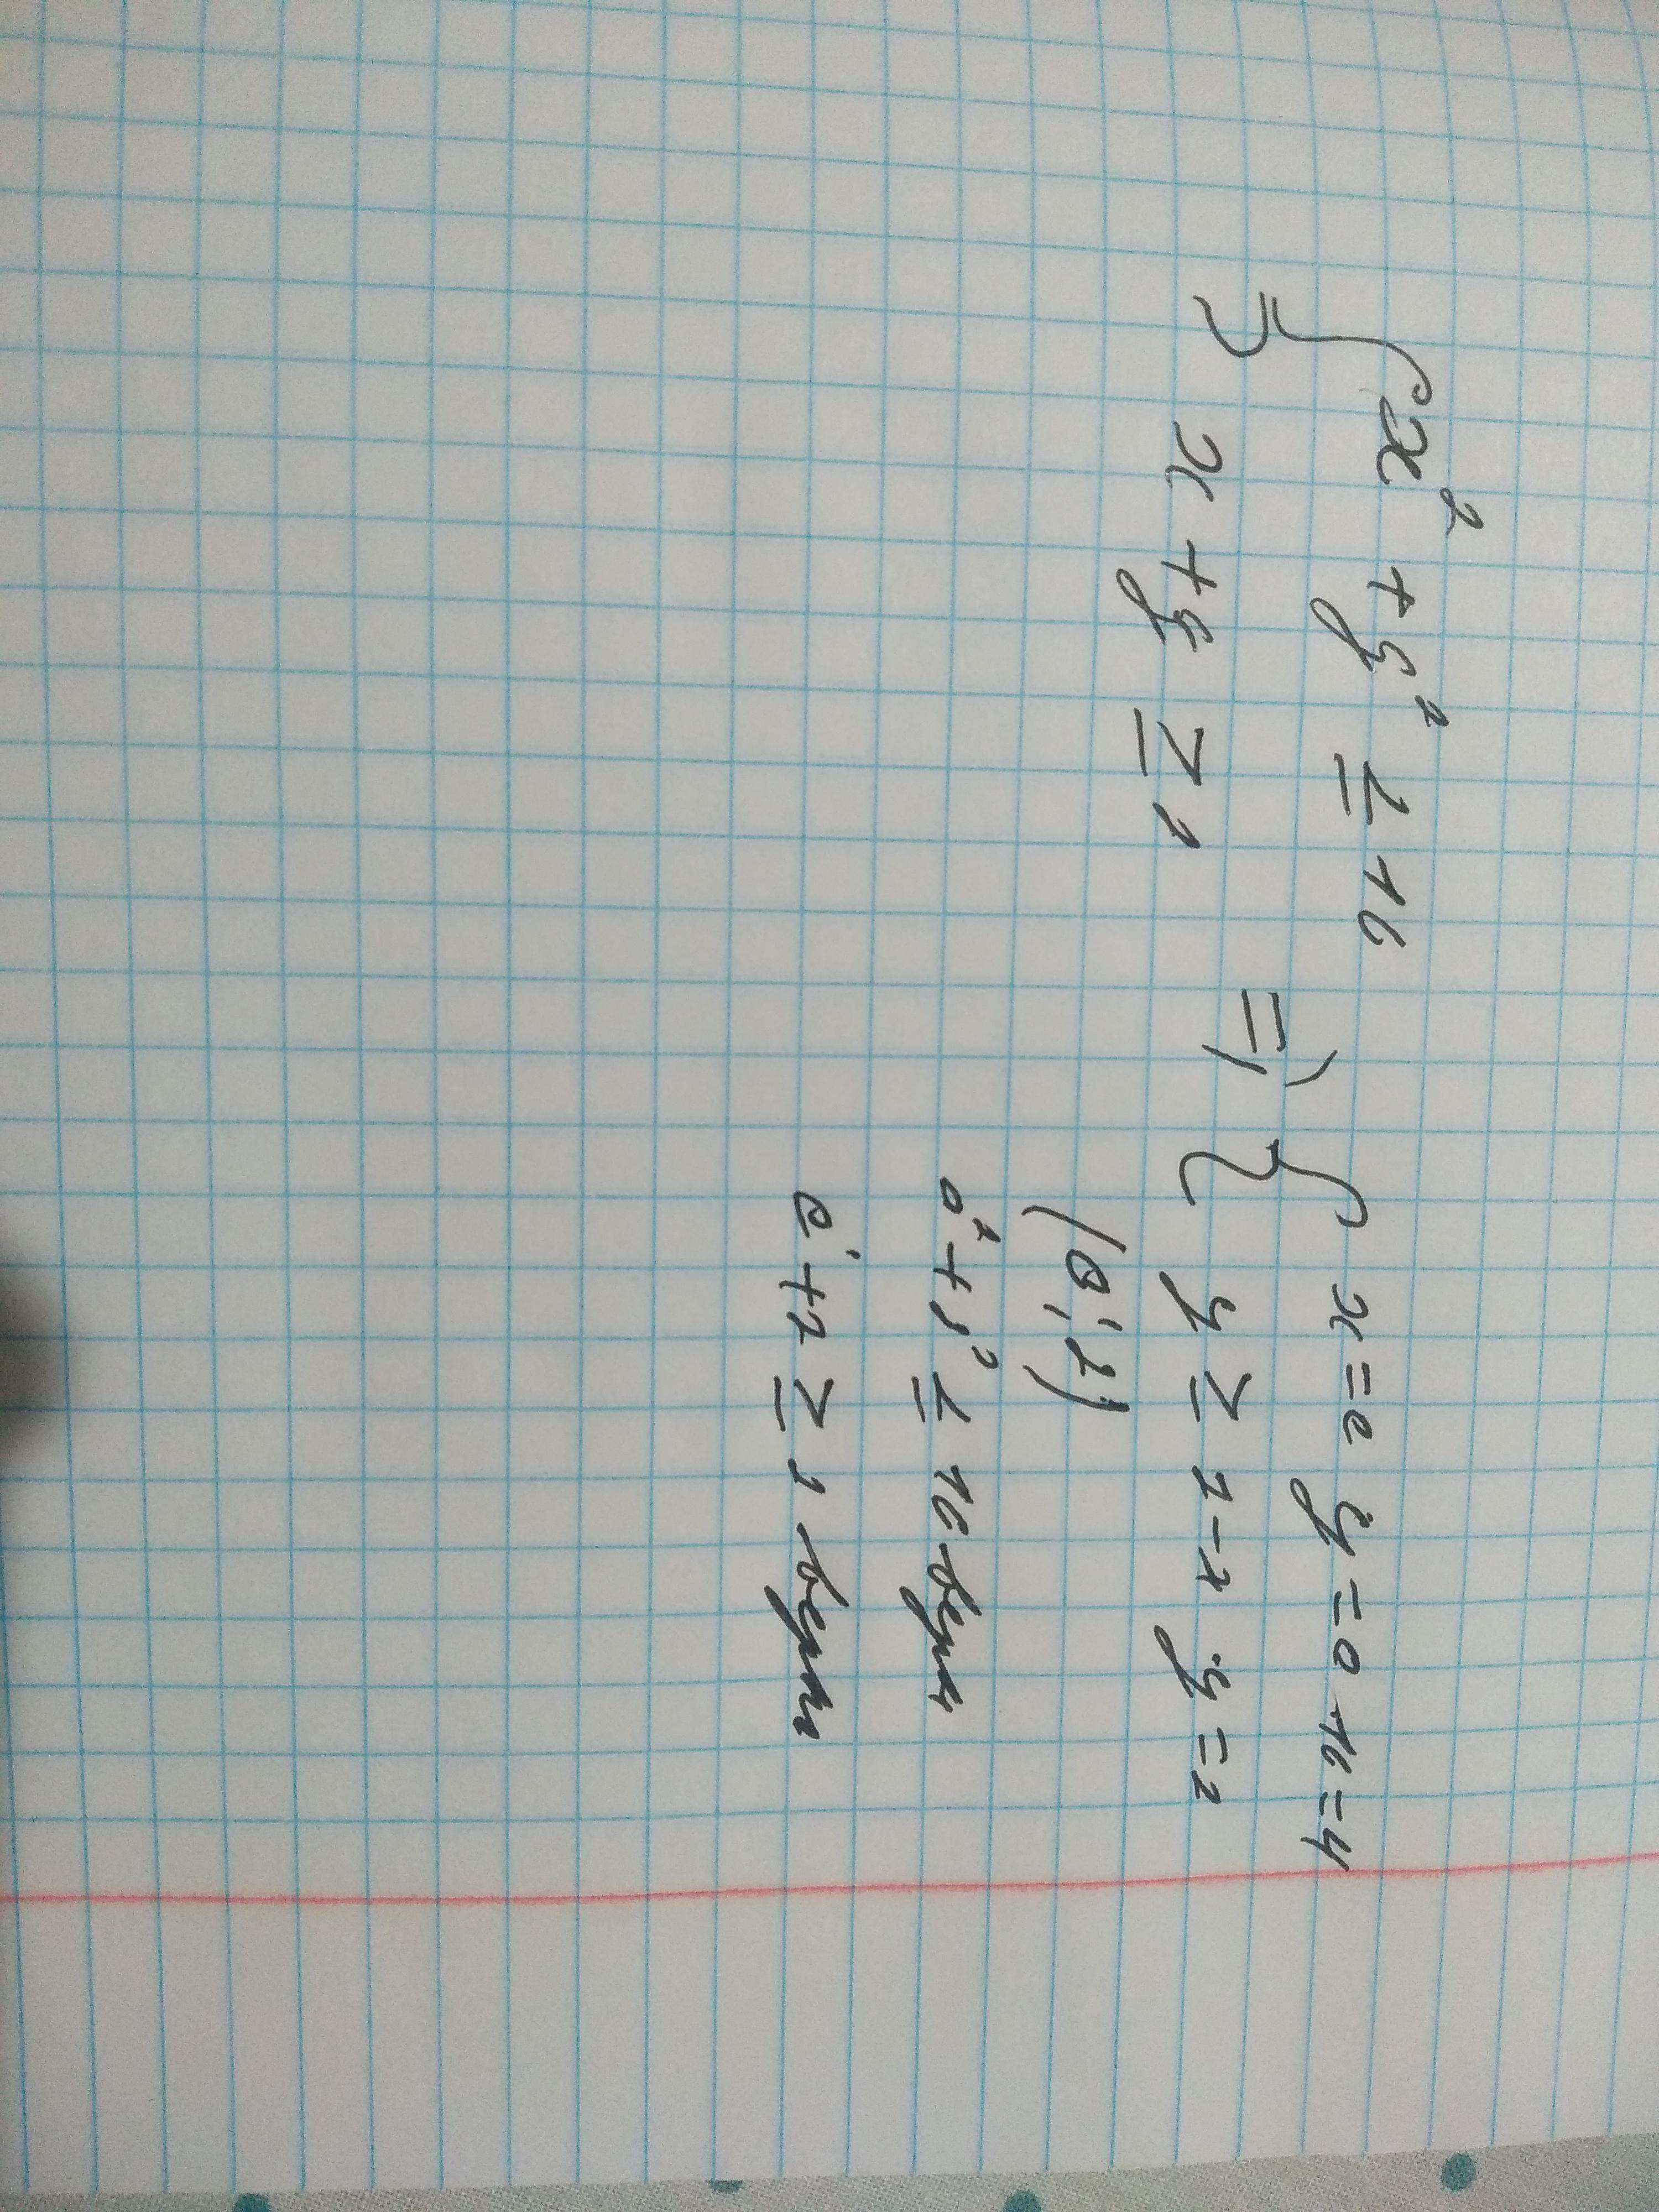 { x² + y² ≤ 16
x + y ≥ 1
=> { x = 0 y = 0 16 = 4
y ≥ 1 - x y = 1
(0; 1)
0² + 1² ≤ 16 верн
0 + 1 ≥ 1 верн